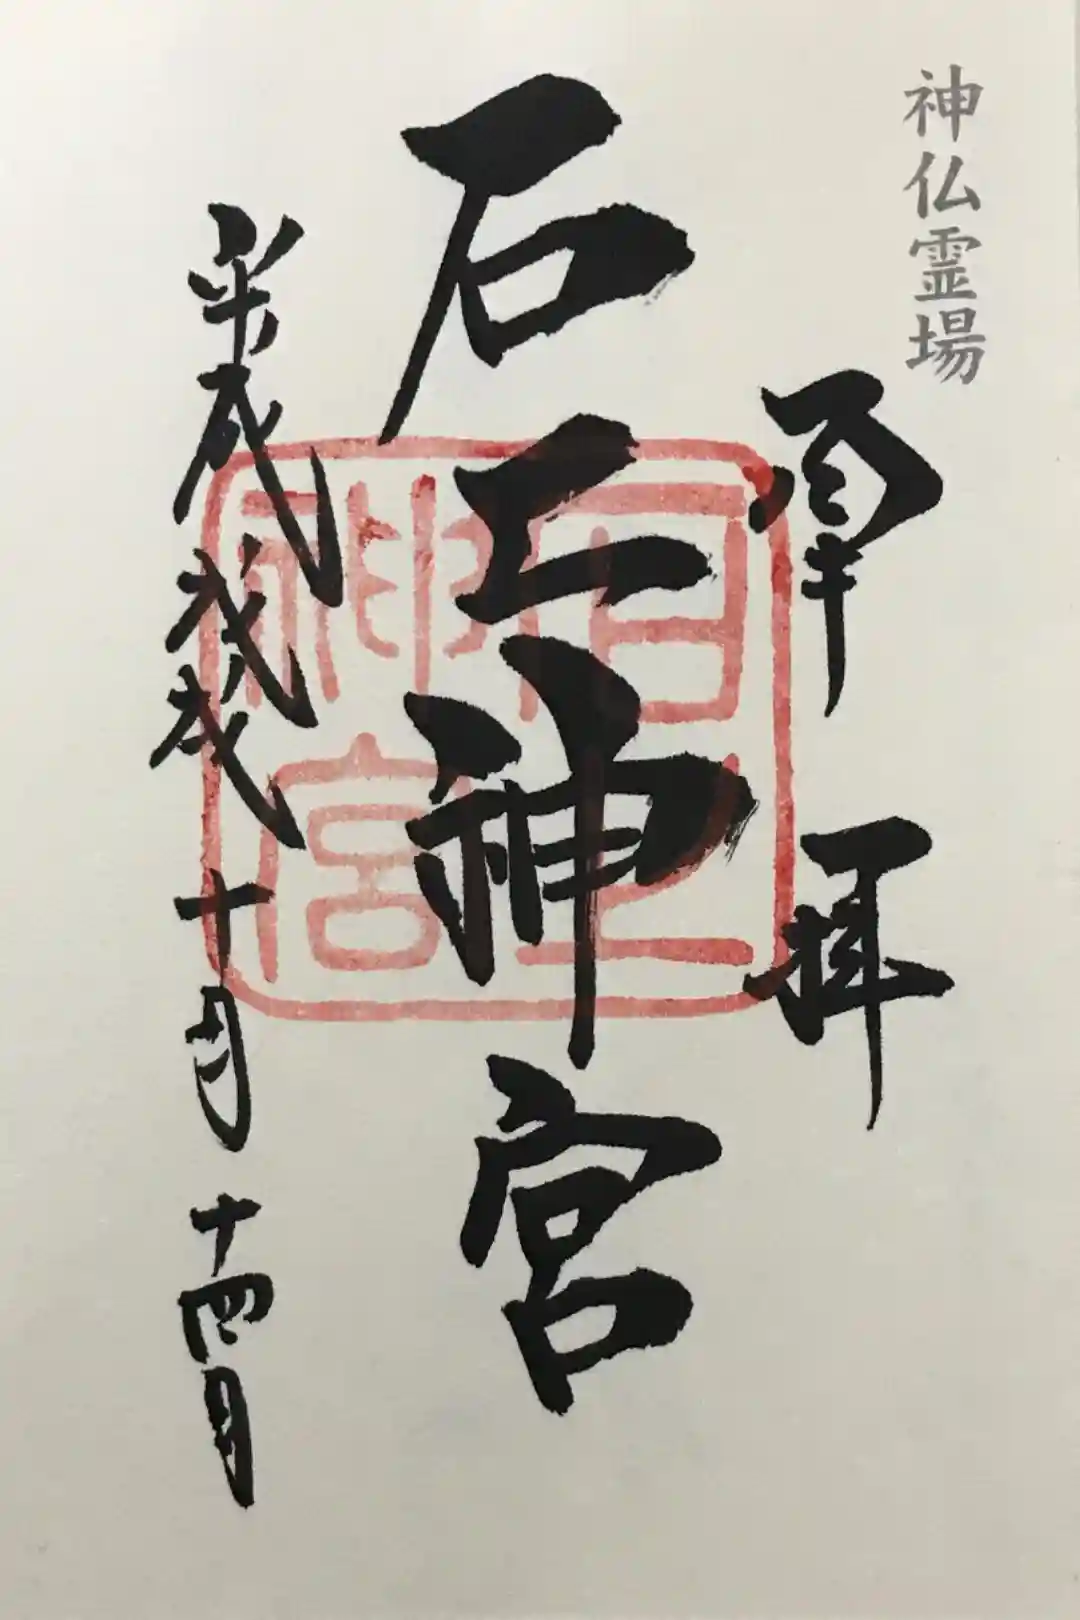 神仏霊場
奉拝
石上神宮
石上神宮
平成戊戌十月十四日